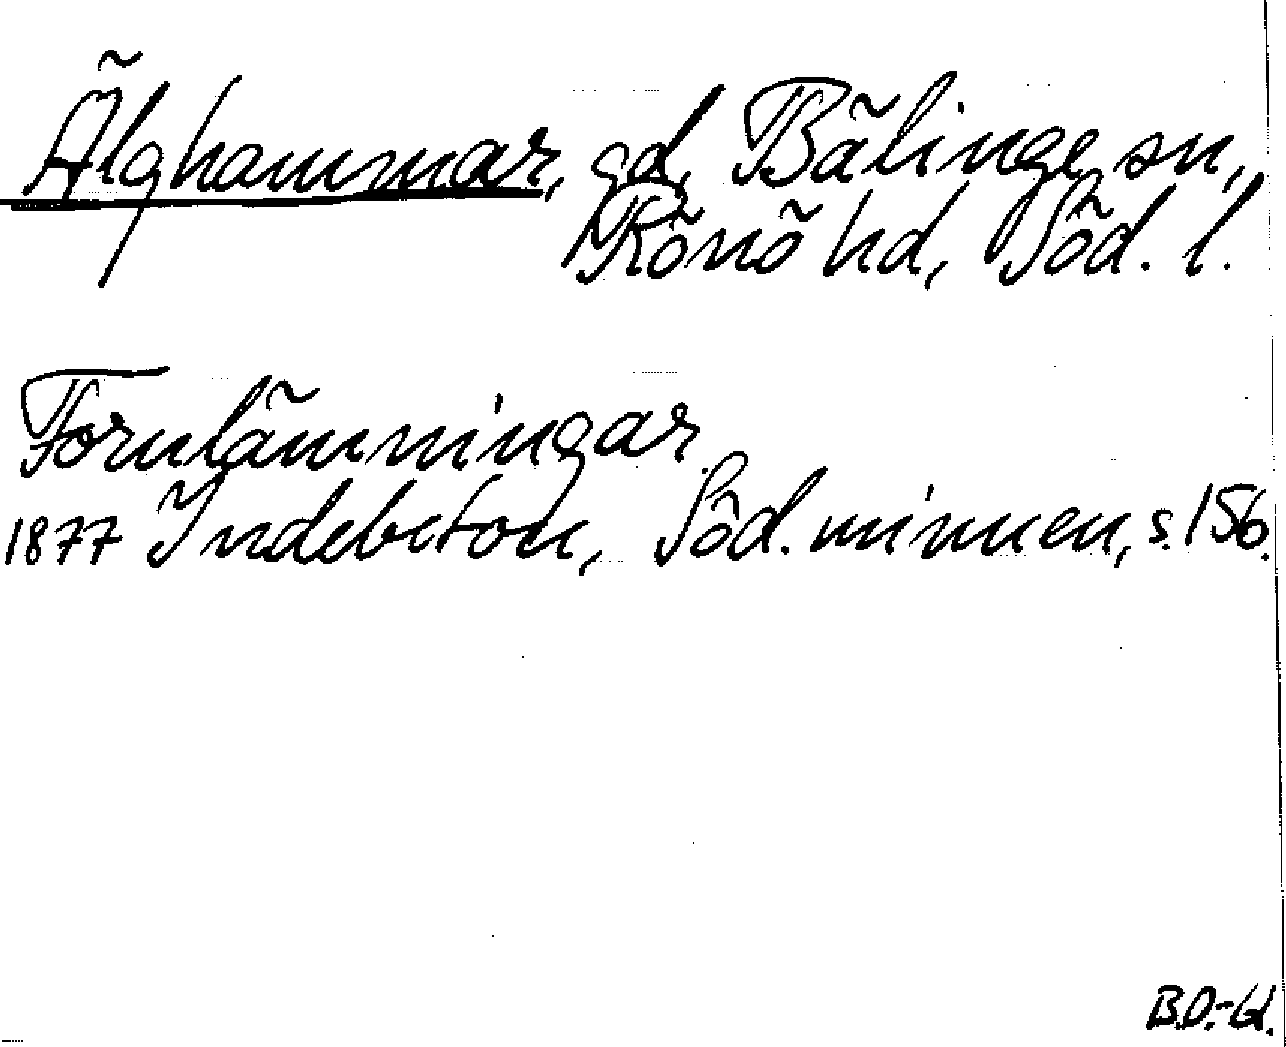 Älghammar, gd, Bälinge sn,
Rönö hd, Söd. l.
Fornlämningar
1877 Indebetou, Söd. minnen, s. 156.
B.D.-G.